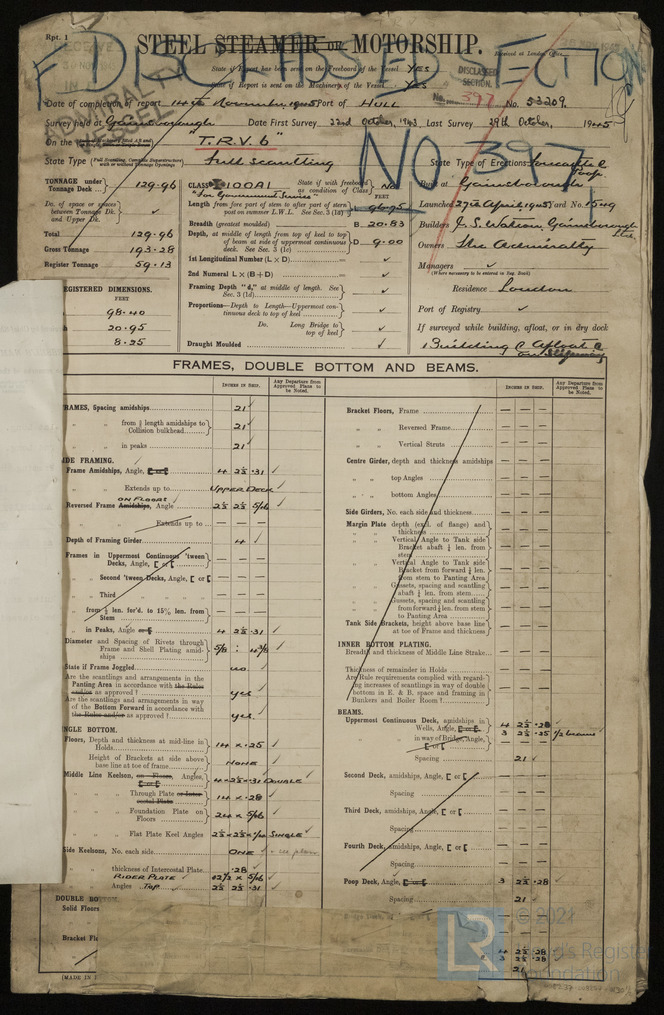 Rpt. 1
STEEL STEAMER or MOTORSHIP.
Received at London Office
State if Report has been sent on the Freeboard of the Vessel YES
State if Report is sent on the Machinery of the Vessel Yes
DISCLASSED SECTION.
No. 397
ADMIRALTY VESSEL
Date of completion of report 14th November 1945 Port of HULL No. 53209
Survey held at Gainsborough Date First Survey 22nd October, 1943 Last Survey 29th October, 1945
On the "T.R.V. 6"
NO 397
State Type (Full Scantling, Complete Superstructure with or without Tonnage Openings) Full scantling State Type of Erections Forecastle & Poop.
TONNAGE under Tonnage Deck 129.96
Do. of space or spaces between Tonnage Dk. and Upper Dk.
Total 129.96
Gross Tonnage 193.28
Register Tonnage 59.13
REGISTERED DIMENSIONS.
FEET
98.40
20.95
8.25
CLASS 100A1 State if with freeboard as condition of Class No
for Government Service
FEET
Length from fore part of stem to after part of stern post on summer L.W.L. See Sec. 3 (1a) 96.75
Breadth (greatest moulded) B 20.83
Depth, at middle of length from top of keel to top of beam at side of uppermost continuous deck. See Sec. 3 (1c) D 9.00
1st Longitudinal Number (L × D)
2nd Numeral L × (B + D)
Framing Depth "d," at middle of length. See Sec. 3 (1d)
Proportions—Depth to Length—Uppermost continuous deck to top of keel
Do. Long Bridge to top of keel
Draught Moulded
Built at Gainsborough
Launched 27th April, 1945 Yard No. 1549
Builders J. S. Watson, Gainsborough Ltd.
Owners The Admiralty
Managers
(Where necessary to be entered in Reg. Book)
Residence London
Port of Registry
If surveyed while building, afloat, or in dry dock
Building & Afloat & on Slipway
FRAMES, DOUBLE BOTTOM AND BEAMS.
INCHES IN SHIP. Any Departure from Approved Plans to be Noted.
FRAMES, Spacing amidships 21
from ⅕ length amidships to Collision bulkhead 21
in peaks 21
SIDE FRAMING.
Frame Amidships, Angle, 4 2½ .31
Extends up to UPPER DECK
ON FLOORS
Reversed Frame Amidships, Angle 2½ 2½ 5/16
Extends up to
Depth of Framing Girder 4
Frames in Uppermost Continuous 'tween Decks, Angle, [ or [
Second 'tween Decks, Angle, [ or [
Third
from ⅕ len. for'd. to 15% len. from Stem
in Peaks, Angle 4 2½ .31
Diameter and Spacing of Rivets through Frame and Shell Plating amidships 5/8 : 4⅜
State if Frame Joggled no
Are the scantlings and arrangements in the Panting Area in accordance with the Rules and/or as approved? yes
Are the scantlings and arrangements in way of the Bottom Forward in accordance with the Rules and/or as approved? yes
SINGLE BOTTOM.
Floors, Depth and thickness at mid-line in Holds 14 × .25
Height of Brackets at side above base line at toe of frame NONE
Middle Line Keelson, on Floors, Angles, 4 × 2½ × .31 DOUBLE
Through Plate or Intercostal Plate 14 × .28
Foundation Plate on Floors 24 × 5/16
Flat Plate Keel Angles SINGLE
Side Keelsons, No. each side ONE
thickness of Intercostal Plate .28
RIDER PLATE
Angles TOP 2½ 2½ .31
DOUBLE BOTTOM
Solid Floors
Bracket Fl
(MADE IN
INCHES IN SHIP. Any Departure from Approved Plans to be Noted.
Bracket Floors, Frame
Reversed Frame
Vertical Struts
Centre Girder, depth and thickness amidships
top Angles
bottom Angles
Side Girders, No. each side and thickness
Margin Plate depth (excl. of flange) and thickness
Vertical Angle to Tank side Bracket abaft ¼ len. from stem
Vertical Angle to Tank side Bracket from forward ¼ len. from stem to Panting Area
Gussets, spacing and scantling abaft ¼ len. from stem
Gussets, spacing and scantling from forward ¼ len. from stem to Panting Area
Tank Side Brackets, height above base line at toe of Frame and thickness
INNER BOTTOM PLATING.
Breadth and thickness of Middle Line Strake
Thickness of remainder in Holds
Are Rule requirements complied with regarding increases of scantlings in way of double bottom in E. & B. space and framing in Bunkers and Boiler Room?
BEAMS.
Uppermost Continuous Deck, amidships in Wells, Angle, 4 2½ .28
in way of Bridge, Angle, [ or [ 3 2½ .25 ½ beams
Spacing 21
Second Deck, amidships, Angle, [ or [
Spacing
Third Deck, amidships, Angle, [ or [
Spacing
Fourth Deck, amidships, Angle, [ or [
Spacing
Poop Deck, Angle, 3 2½ .28
Spacing 21
4 2½ .28
3 2½ .28
21
© 2021
Lloyd's Register
Foundation